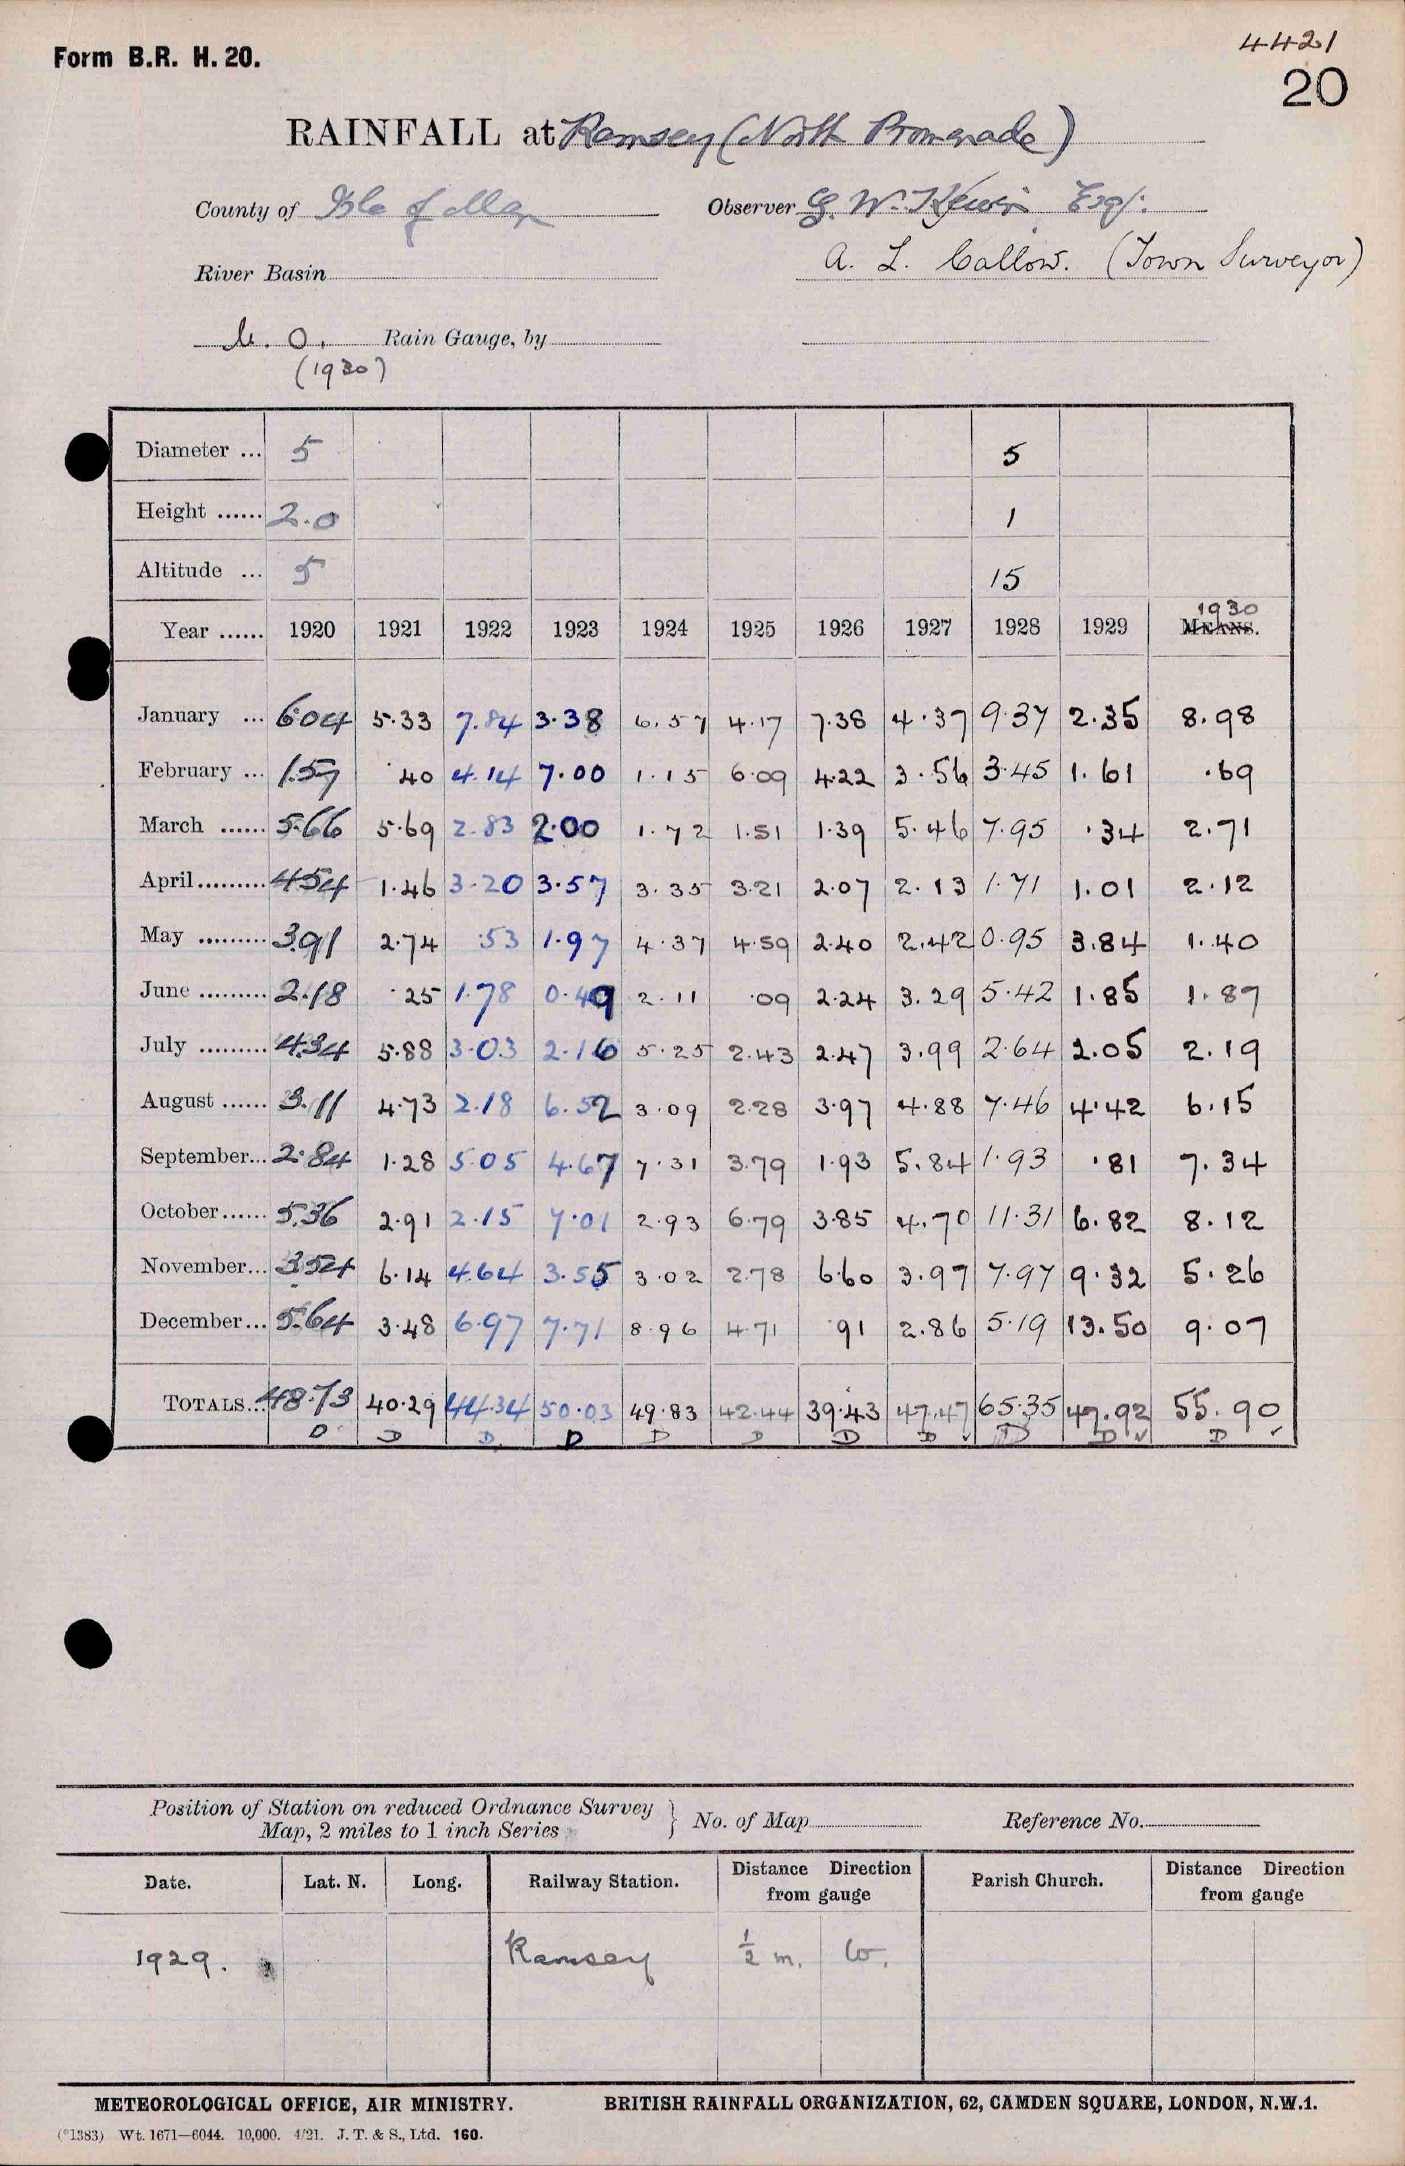 Form B.R. H. 20.
4421
20
RAINFALL at Ramsey (North Promenade)
County of Isle of Man Observer G. W. Kewin Esq.
River Basin A. L. Callow. (Town Surveyor)
M. O. Rain Gauge, by
(1930)
Diameter ... 5 5
Height ...... 2.0 1
Altitude ... 5 15
Year ...... 1920 1921 1922 1923 1924 1925 1926 1927 1928 1929 1930 MEANS.
January ... 6.04 5.33 7.84 3.38 6.57 4.17 7.38 4.37 9.37 2.35 8.98
February ... 1.57 .40 4.14 7.00 1.15 6.09 4.22 3.56 3.45 1.61 .69
March ...... 5.66 5.69 2.83 2.00 1.72 1.51 1.39 5.46 7.95 .34 2.71
April ......... 4.54 1.46 3.20 3.57 3.35 3.21 2.07 2.13 1.71 1.01 2.12
May ......... 3.91 2.74 .53 1.97 4.37 4.59 2.40 2.42 0.95 3.84 1.40
June ......... 2.18 .25 1.78 0.49 2.11 .09 2.24 3.29 5.42 1.85 1.87
July ......... 4.34 5.88 3.03 2.16 5.25 2.43 2.47 3.99 2.64 2.05 2.19
August ...... 3.11 4.73 2.18 6.52 3.09 2.28 3.97 4.88 7.46 4.42 6.15
September... 2.84 1.28 5.05 4.67 7.31 3.79 1.93 5.84 1.93 .81 7.34
October...... 5.36 2.91 2.15 7.01 2.93 6.79 3.85 4.70 11.31 6.82 8.12
November... 3.54 6.14 4.64 3.55 3.02 2.78 6.60 3.97 7.97 9.32 5.26
December... 5.64 3.48 6.97 7.71 8.96 4.71 .91 2.86 5.19 13.50 9.07
TOTALS... 48.73 40.29 44.34 50.03 49.83 42.44 39.43 47.47 65.35 47.92 55.90
D D D D D D D D ✓ D D ✓ D ✓
Position of Station on reduced Ordnance Survey
Map, 2 miles to 1 inch Series } No. of Map Reference No.
Date. Lat. N. Long. Railway Station. Distance Direction from gauge Parish Church. Distance Direction from gauge
1929. Ramsey ½ m. W.
METEOROLOGICAL OFFICE, AIR MINISTRY. BRITISH RAINFALL ORGANIZATION, 62, CAMDEN SQUARE, LONDON, N.W.1.
(*1383) Wt. 1671—6044. 10,000. 4/21. J. T. & S., Ltd. 160.